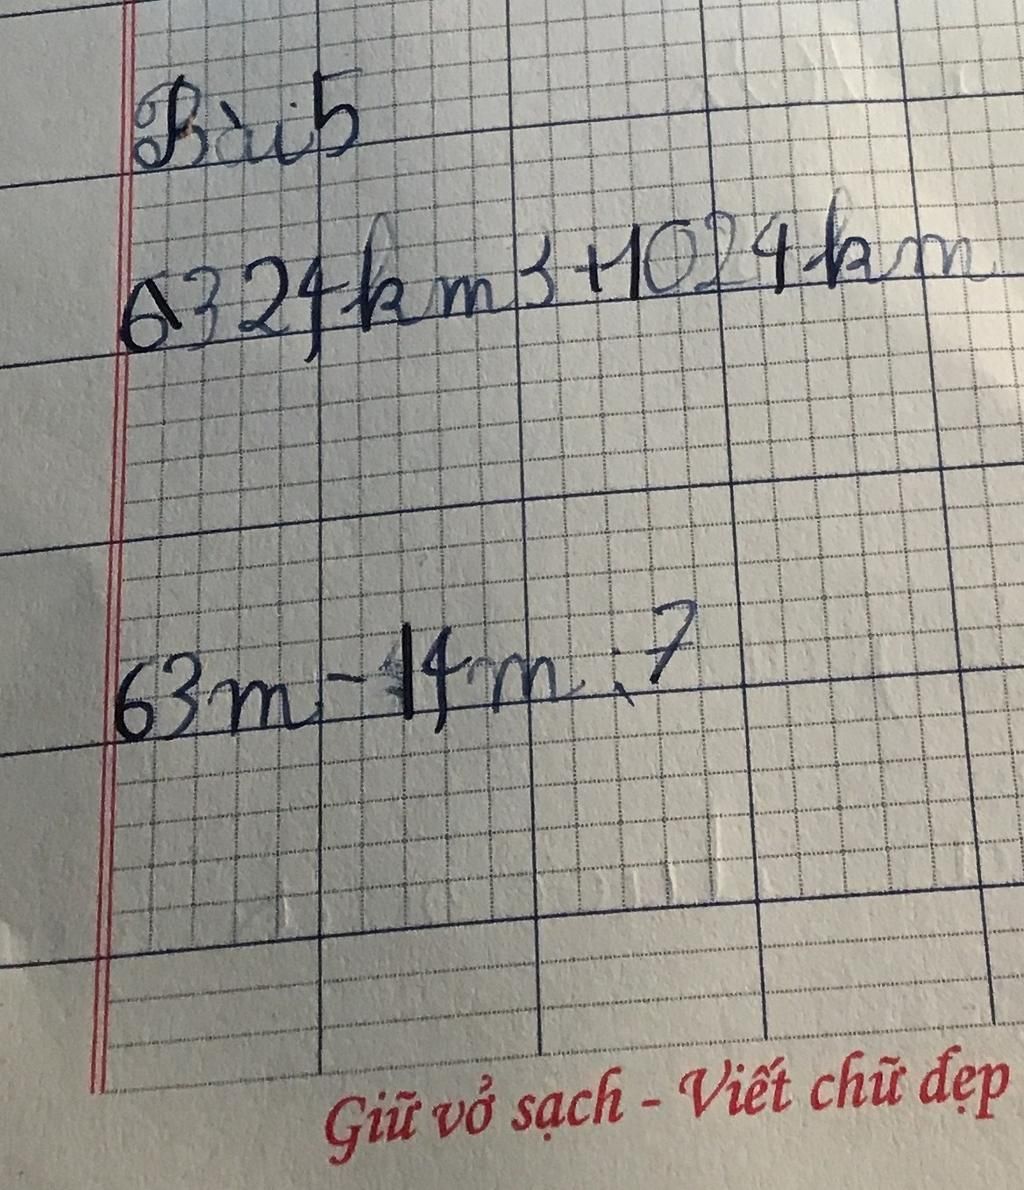 Bài 5
6324km 3+1024km
63m-14m:7
Giữ vở sạch - Viết chữ đẹp